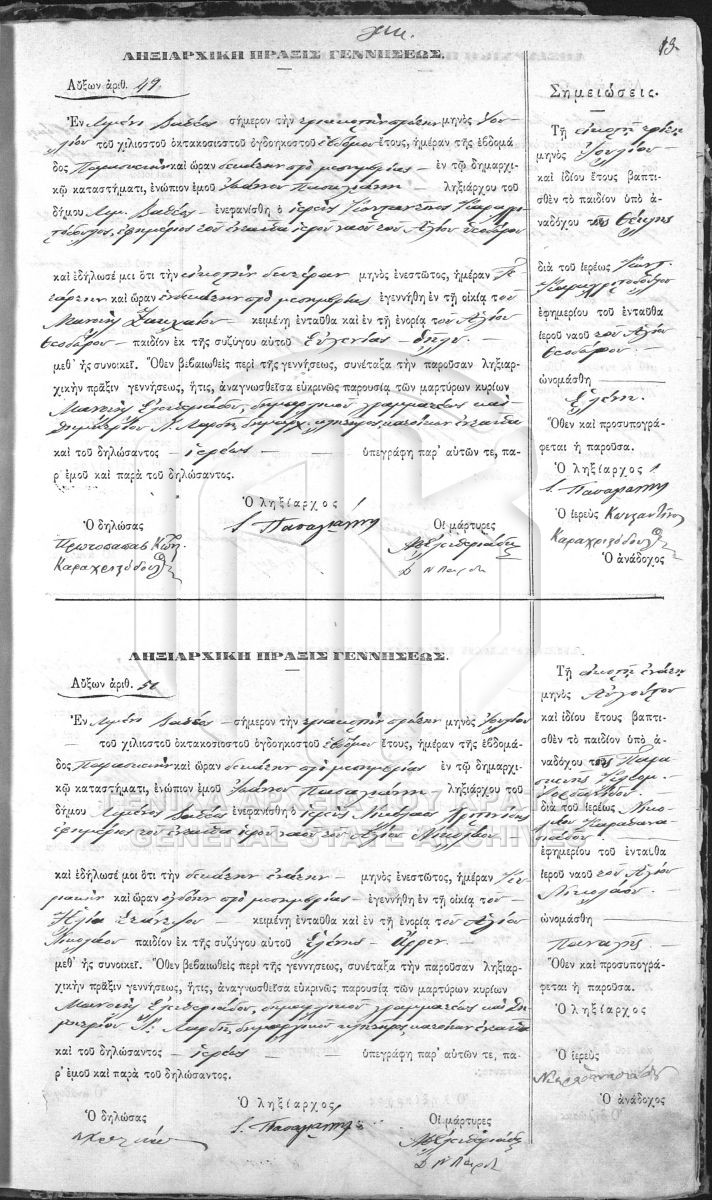 13
ΛΗΞΙΑΡΧΙΚΗ ΠΡΑΞΙΣ ΓΕΝΝΗΣΕΩΣ.
Αὔξων ἀριθ. 49.
Ἐν Λιμένι Βαθέος σήμερον τὴν τριακοστὴν πρώτην μηνὸς Ἰου-
λίου τοῦ χιλιοστοῦ ὀκτακοσιοστοῦ ὀγδοηκοστοῦ ἑβδόμου ἔτους, ἡμέραν τῆς ἑβδομά-
δος Παρασκευὴν καὶ ὥραν δεκάτην πρὸ μεσημβρίας — ἐν τῷ δημαρχι-
κῷ καταστήματι, ἐνώπιον ἐμοῦ Ἰωάννου ληξιάρχου τοῦ
δήμου Λιμ. Βαθέος — ἐνεφανίσθη ὁ ἱερεὺς Κωνσταντῖνος
ἐφημέριος τοῦ ἐνταῦθα ἱεροῦ ναοῦ τοῦ Ἁγίου Θεοδώρου
καὶ ἐδήλωσέ μοι ὅτι τὴν εἰκοστὴν δευτέραν μηνὸς ἐνεστῶτος, ἡμέραν Τε-
τάρτην καὶ ὥραν ἑνδεκάτην πρὸ μεσημβρίας ἐγεννήθη ἐν τῇ οἰκίᾳ τοῦ
Μανουὴλ — κειμένῃ ἐνταῦθα καὶ ἐν τῇ ἐνορίᾳ τοῦ Ἁγίου
Θεοδώρου — παιδίον ἐκ τῆς συζύγου αὐτοῦ Εὐγενίας — θῆλυ —
μεθ' ἧς συνοικεῖ. Ὅθεν βεβαιωθεὶς περὶ τῆς γεννήσεως, συνέταξα τὴν παροῦσαν ληξιαρ-
χικὴν πρᾶξιν γεννήσεως, ἥτις, ἀναγνωσθεῖσα εὐκρινῶς παρουσίᾳ τῶν μαρτύρων κυρίων
Μανουὴλ Ἐλευθεριάδου, δημαρχικοῦ γραμματέως καὶ
Δημητρίου Ν. κλητῆρος, κατοίκων ἐνταῦθα
καὶ τοῦ δηλώσαντος — ἱερέως — ὑπεγράφη παρ' αὐτῶν τε, πα-
ρ' ἐμοῦ καὶ παρὰ τοῦ δηλώσαντος.
Ὁ ληξίαρχος
Ὁ δηλώσας
Οἱ μάρτυρες
Σημειώσεις.
Τῇ εἰκοστῇ τρίτῃ
μηνὸς Ἰουλίου
καὶ ἰδίου ἔτους βαπτι-
σθὲν τὸ παιδίον ὑπὸ ἀ-
ναδόχου
διὰ τοῦ ἱερέως Κωνστ.
ἐφημερίου τοῦ ἐνταῦθα
ἱεροῦ ναοῦ τοῦ Ἁγίου
Θεοδώρου.
ὠνομάσθη
Ἑλένη.
Ὅθεν καὶ προσυπογρά-
φεται ἡ παροῦσα.
Ὁ ληξίαρχος
Ὁ ἱερεὺς Κωνσταντῖνος
Ὁ ἀνάδοχος
ΛΗΞΙΑΡΧΙΚΗ ΠΡΑΞΙΣ ΓΕΝΝΗΣΕΩΣ.
Αὔξων ἀριθ. 50.
Ἐν Λιμένι Βαθέος — σήμερον τὴν τριακοστὴν πρώτην μηνὸς Ἰουλίου
— τοῦ χιλιοστοῦ ὀκτακοσιοστοῦ ὀγδοηκοστοῦ ἑβδόμου ἔτους, ἡμέραν τῆς ἑβδομά-
δος Παρασκευὴν καὶ ὥραν δεκάτην πρὸ μεσημβρίας — ἐν τῷ δημαρχι-
κῷ καταστήματι, ἐνώπιον ἐμοῦ Ἰωάννου ληξιάρχου τοῦ
δήμου Λιμένος Βαθέος ἐνεφανίσθη ὁ ἱερεὺς Νικόλαος
ἐφημέριος τοῦ ἐνταῦθα ἱεροῦ ναοῦ τοῦ Ἁγίου Νικολάου
ΓΕΝΙΚΑ ΑΡΧΕΙΑ ΤΟΥ ΚΡΑΤΟΥΣ
GENERAL STATE ARCHIVES
καὶ ἐδήλωσέ μοι ὅτι τὴν δεκάτην ἐνάτην — μηνὸς ἐνεστῶτος, ἡμέραν Κυ-
ριακὴν καὶ ὥραν ὀγδόην πρὸ μεσημβρίας — ἐγεννήθη ἐν τῇ οἰκίᾳ τοῦ —
Ἠλία — κειμένῃ ἐνταῦθα καὶ ἐν τῇ ἐνορίᾳ τοῦ Ἁγίου
Νικολάου παιδίον ἐκ τῆς συζύγου αὐτοῦ Ἑλένης — ἄρρεν —
μεθ' ἧς συνοικεῖ. Ὅθεν βεβαιωθεὶς περὶ τῆς γεννήσεως, συνέταξα τὴν παροῦσαν ληξιαρ-
χικὴν πρᾶξιν γεννήσεως, ἥτις, ἀναγνωσθεῖσα εὐκρινῶς παρουσίᾳ τῶν μαρτύρων κυρίων
Μανουὴλ Ἐλευθεριάδου, δημαρχικοῦ γραμματέως καὶ Δη-
μητρίου Ν. δημαρχικοῦ κλητῆρος, κατοίκων ἐνταῦθα
καὶ τοῦ δηλώσαντος — ἱερέως — ὑπεγράφη παρ' αὐτῶν τε, πα-
ρ' ἐμοῦ καὶ παρὰ τοῦ δηλώσαντος.
Ὁ ληξίαρχος
Ὁ δηλώσας
Οἱ μάρτυρες
Τῇ εἰκοστῇ ἐνάτῃ
μηνὸς Αὐγούστου
καὶ ἰδίου ἔτους βαπτι-
σθὲν τὸ παιδίον ὑπὸ ἀ-
ναδόχου τῆς Παρα-
σκευῆς
διὰ τοῦ ἱερέως Νικο-
λάου
ἐφημερίου τοῦ ἐνταῦθα
ἱεροῦ ναοῦ τοῦ Ἁγίου
Νικολάου.
ὠνομάσθη
Παναγῆς
Ὅθεν καὶ προσυπογρά-
φεται ἡ παροῦσα.
Ὁ ληξίαρχος
Ὁ ἱερεὺς
Ὁ ἀνάδοχος